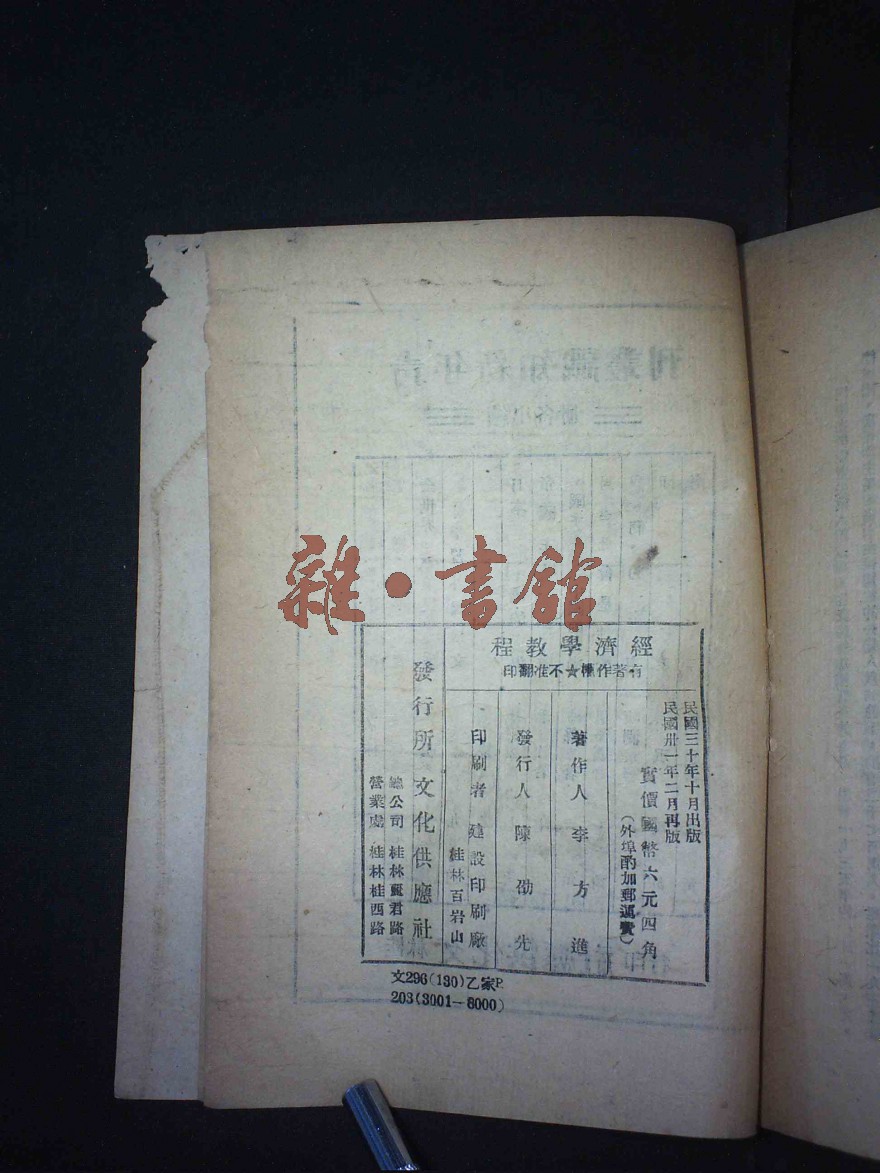 經濟學教程
有著作權★不准翻印
民國三十年十月出版
民國卅一年二月再版
實價國幣六元四角
(外埠酌加郵運費)
著作人 李方進
發行人 陳劭先
印刷者 建設印刷廠
桂林百岩山
發行所 文化供應社
總公司 桂林麗君路
營業處 桂林桂西路
文296(130)乙家P.
203(3001—8000)
雜·書館